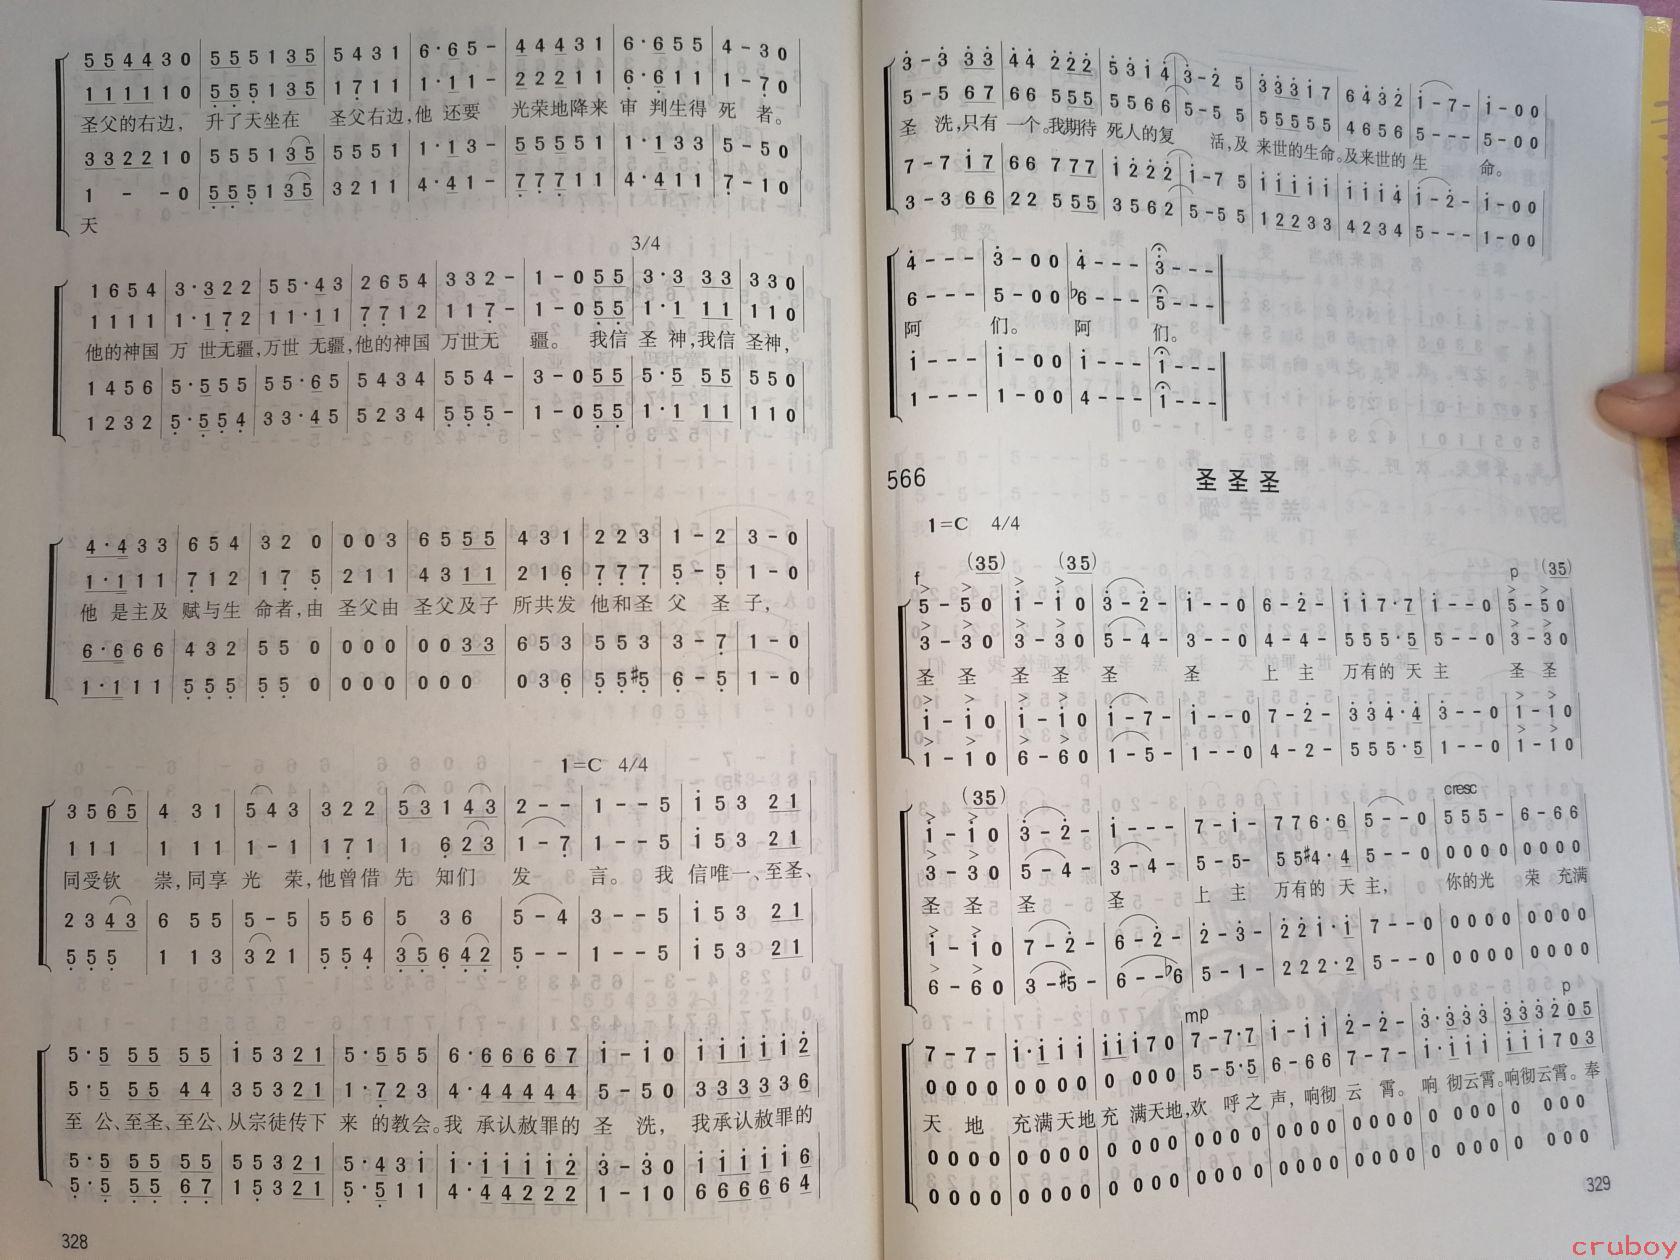 5 5 4 4 3 0 | 5 5 5 1 3 5 | 5 4 3 1 | 6·6 5 - | 4 4 4 3 1 | 6·6 5 5 | 4 - 3 0
1 1 1 1 1 0 | 5 5 5 1 3 5 | 1 7 1 1 | 1·1 1 - | 2 2 2 1 1 | 6·6 1 1 | 1 - 7 0
圣父的右边, 升了天坐在 圣父右边,他 还要 光荣地降来 审 判生得 死 者。
3 3 2 2 1 0 | 5 5 5 1 3 5 | 5 5 5 1 | 1·1 3 - | 5 5 5 5 1 | 1·1 3 3 | 5 - 5 0
1 - - 0 | 5 5 5 1 3 5 | 3 2 1 1 | 4·4 1 - | 7 7 7 1 1 | 4·4 1 1 | 7 - 1 0
天
3/4
1 6 5 4 | 3·3 2 2 | 5 5·4 3 | 2 6 5 4 | 3 3 2 - | 1 - 0 5 5 | 3·3 3 3 | 3 3 0
1 1 1 1 | 1·1 7 2 | 1 1·1 1 | 7 7 1 2 | 1 1 7 - | 1 - 0 5 5 | 1·1 1 1 | 1 1 0
他的神国 万 世无疆,万世 无疆,他的神国 万世无 疆。 我信 圣 神,我信 圣神,
1 4 5 6 | 5·5 5 5 | 5 5·6 5 | 5 4 3 4 | 5 5 4 - | 3 - 0 5 5 | 5·5 5 5 | 5 5 0
1 2 3 2 | 5·5 5 4 | 3 3·4 5 | 5 2 3 4 | 5 5 5 - | 1 - 0 5 5 | 1·1 1 1 | 1 1 0
4·4 3 3 | 6 5 4 | 3 2 0 | 0 0 3 | 6 5 5 5 | 4 3 1 | 2 2 3 | 1 - 2 | 3 - 0
1·1 1 1 | 7 1 2 | 1 7 5 | 2 1 1 | 4 3 1 1 | 2 1 6 | 7 7 7 | 5 - 5 | 1 - 0
他 是主及 赋与生 命者,由 圣父由 圣父及子 所共发 他和圣 父 圣 子,
6·6 6 6 | 4 3 2 | 5 5 0 | 0 0 0 | 0 0 3 3 | 6 5 3 | 5 5 3 | 3 - 7 | 1 - 0
1·1 1 1 | 5 5 5 | 5 5 0 | 0 0 0 | 0 0 0 | 0 3 6 | 5 5 #5 | 6 - 5 | 1 - 0
1=C 4/4
3 5 6 5 | 4 3 1 | 5 4 3 | 3 2 2 | 5 3 1 4 3 | 2 - - | 1 - - 5 | i 5 3 2 1
1 1 1 | 1 1 1 | 1 - 1 | 1 7 1 | 1 6 2 3 | 1 - 7 | 1 - - 5 | i 5 3 2 1
同受钦 崇,同享 光 荣,他曾借 先 知们 发 言。 我 信唯一、至圣、
2 3 4 3 | 6 5 5 | 5 - 5 | 5 5 6 | 5 3 6 | 5 - 4 | 3 - - 5 | i 5 3 2 1
5 5 5 | 1 1 3 | 3 2 1 | 5 5 4 | 3 5 6 4 2 | 5 - - | 1 - - 5 | i 5 3 2 1
5·5 5 5 5 5 | i 5 3 2 1 | 5·5 5 5 | 6·6 6 6 6 7 | i - i 0 | i i i i i 2
5·5 5 5 4 4 | 3 5 3 2 1 | 1·7 2 3 | 4·4 4 4 4 4 | 5 - 5 0 | 3 3 3 3 3 6
至 公、至圣、至公、从宗徒传下 来 的教会。我 承认赦罪的 圣 洗, 我承认赦罪的
5·5 5 5 5 5 | 5 5 3 2 1 | 5·4 3 i | i·i i i i 2 | 3 - 3 0 | i i i i i 6
5·5 5 5 6 7 | 1 5 3 2 1 | 5·5 1 1 | 4·4 4 2 2 2 | 1 - 1 0 | 6 6 6 6 6 4
328
3 - 3 3 3 | 4 4 2 2 2 | 5 3 i 4 | 3 - 2 5 | 3 3 3 i 7 | 6 4 3 2 | i - 7 - | i - 0 0
5 - 5 6 7 | 6 6 5 5 5 | 5 5 6 6 | 5 - 5 5 | 5 5 5 5 5 | 4 6 5 6 | 5 - - - | 5 - 0 0
圣 洗,只有 一个。我期待 死人的复 活,及 来世的生命。及来世的 生 命。
7 - 7 i 7 | 6 6 7 7 7 | i 2 2 2 | i - 7 5 | i i i i i | i i i 4 | i - 2 - | i - 0 0
3 - 3 6 6 | 2 2 5 5 5 | 3 5 6 2 | 5 - 5 5 | 1 2 2 3 3 | 4 2 3 4 | 5 - - - | 1 - 0 0
4 - - - | 3 - 0 0 | 4 - - - | 3 - - -
6 - - - | 5 - 0 0 | b6 - - - | 5 - - -
阿 们。 阿 们。
i - - - | i - 0 0 | i - - - | i - - -
1 - - - | 1 - 0 0 | 4 - - - | 1 - - -
566 圣圣圣
1=C 4/4
f (35) (35) p (35)
5 - 5 0 | i - i 0 | 3 - 2 - | i - - 0 | 6 - 2 - | i i 7·7 | i - - 0 | 5 - 5 0
3 - 3 0 | 3 - 3 0 | 5 - 4 - | 3 - - 0 | 4 - 4 - | 5 5 5·5 | 5 - - 0 | 3 - 3 0
圣 圣 圣 圣 圣 圣 上 主 万有的 天 主 圣 圣
i - i 0 | i - i 0 | i - 7 - | i - - 0 | 7 - 2 - | 3 3 4·4 | 3 - - 0 | 1 - 1 0
1 - 1 0 | 6 - 6 0 | 1 - 5 - | 1 - - 0 | 4 - 2 - | 5 5 5·5 | 1 - - 0 | 1 - 1 0
(35) cresc
i - i 0 | 3 - 2 - | i - - - | 7 - i - | 7 7 6·6 | 5 - - 0 | 5 5 5 - | 6 - 6 6
3 - 3 0 | 5 - 4 - | 3 - 4 - | 5 - 5 - | 5 5 #4·4 | 5 - - 0 | 0 0 0 0 | 0 0 0 0
圣 圣 圣 圣 上 主 万有的 天 主, 你的光 荣 充满
i - i 0 | 7 - 2 - | 6 - 2 - | 2 - 3 - | 2 2 i·i | 7 - - 0 | 0 0 0 0 | 0 0 0 0
6 - 6 0 | 3 - #5 - | 6 - - b6 | 5 - 1 - | 2 2 2·2 | 5 - - 0 | 0 0 0 0 | 0 0 0 0
mp p
7 - 7 - | i·i i i | i i i 7 0 | 7 - 7·7 | i - i i | 2 - 2 - | 3·3 3 3 | 3 3 3 2 0 5
0 0 0 0 | 0 0 0 0 | 0 0 0 0 | 5 - 5·5 | 6 - 6 6 | 7 - 7 - | i·i i i | i i i 7 0 3
天 地 充满天地充 满天地,欢 呼 之 声, 响彻 云 霄。 响 彻云霄。响彻云霄。奉
0 0 0 0 | 0 0 0 0 | 0 0 0 0 | 0 0 0 0 | 0 0 0 0 | 0 0 0 0 | 0 0 0 0 | 0 0 0 0
0 0 0 0 | 0 0 0 0 | 0 0 0 0 | 0 0 0 0 | 0 0 0 0 | 0 0 0 0 | 0 0 0 0 | 0 0 0 0
329
cruboy